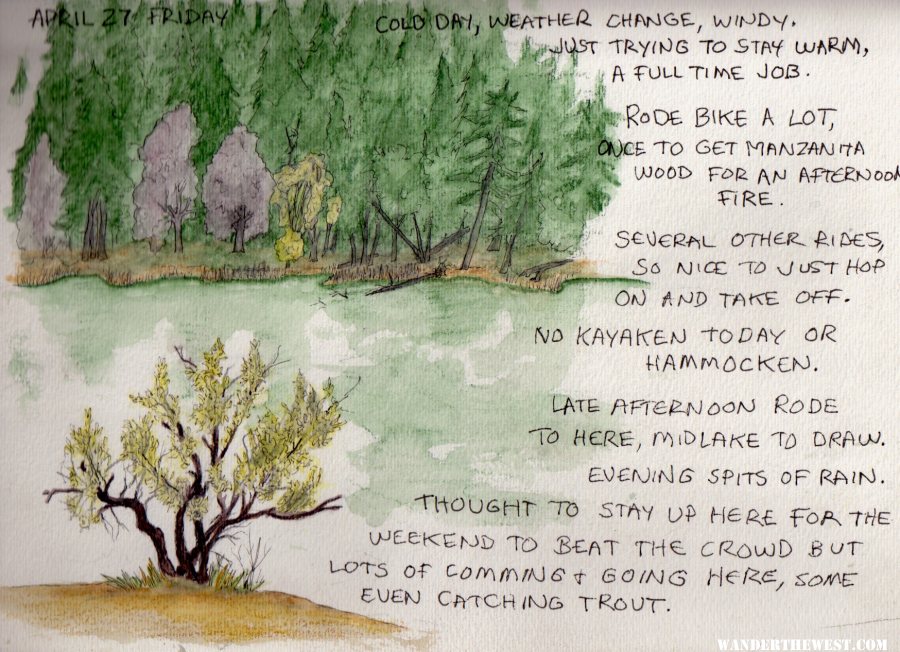 APRIL 27 FRIDAY
COLD DAY, WEATHER CHANGE, WINDY.
JUST TRYING TO STAY WARM,
A FULL TIME JOB.
RODE BIKE A LOT,
ONCE TO GET MANZANITA
WOOD FOR AN AFTERNOON
FIRE.
SEVERAL OTHER RIDES,
SO NICE TO JUST HOP
ON AND TAKE OFF.
NO KAYAKEN TODAY OR
HAMMOCKEN.
LATE AFTERNOON RODE
TO HERE, MIDLAKE TO DRAW.
EVENING SPITS OF RAIN.
THOUGHT TO STAY UP HERE FOR THE
WEEKEND TO BEAT THE CROWD BUT
LOTS OF COMMING & GOING HERE, SOME
EVEN CATCHING TROUT.
WANDERTHEWEST.COM